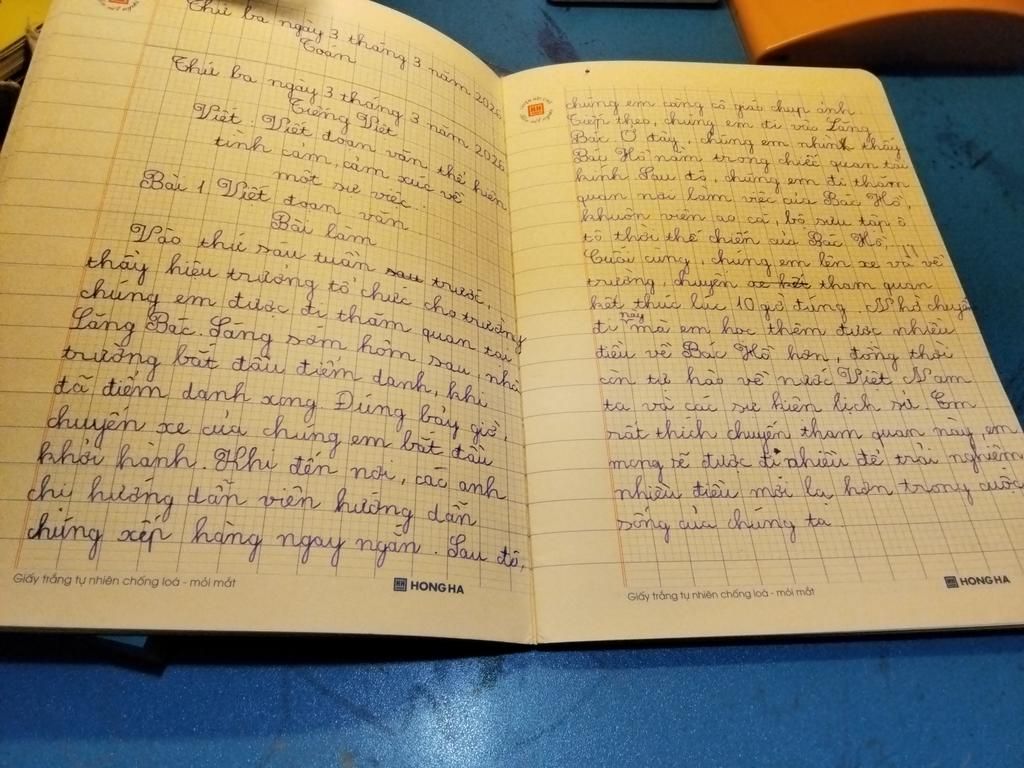 Thứ ba ngày 3 tháng 3 năm 2026
Toán
Thứ ba ngày 3 tháng 3 năm 2026
Tiếng Việt
Viết: Viết đoạn văn thể hiện
tình cảm, cảm xúc về
một sự việc.
Bài 1. Viết đoạn văn
Bài làm
Vào thứ sáu tuần sau trước,
thầy hiệu trưởng tổ chức cho trường
chúng em được đi thăm quan tại
Lăng Bác. Sáng sớm hôm sau, nhà
trường bắt đầu điểm danh, khi
đã điểm danh xong. Đúng bảy giờ,
chuyến xe của chúng em bắt đầu
khởi hành. Khi đến nơi, các anh
chị hướng dẫn viên hướng dẫn
chúng xếp hàng ngay ngắn. Sau đó,
Giấy trắng tự nhiên chống loá - mỏi mắt
HONG HA
chúng em cùng cô giáo chụp ảnh
Tiếp theo, chúng em đi vào Lăng
Bác. Ở đây, chúng em nhình thấy
Bác Hồ nằm trong chiếc quan tài
kính. Sau đó, chúng em đi thăm
quan nơi làm việc của Bác Hồ,
khuôn viên ao cá, bộ sưu tập ô
tô thời thế chiến của Bác Hồ,...
Cuối cùng, chúng em lên xe và về
trường, chuyến xe kết tham quan
kết thúc lúc 10 giờ đúng. Nhờ chuyến
đi này mà em học thêm được nhiều
điều về Bác Hồ hơn, đồng thời
còn tự hào về nước Việt Nam
ta và các sự kiện lịch sử. Em
rất thích chuyến tham quan này, em
mong sẽ được đi nhiều để trải nghiệm
nhiều điều mới lạ hơn trong cuộc
sống của chúng ta.
Giấy trắng tự nhiên chống loá - mỏi mắt
HONG HA